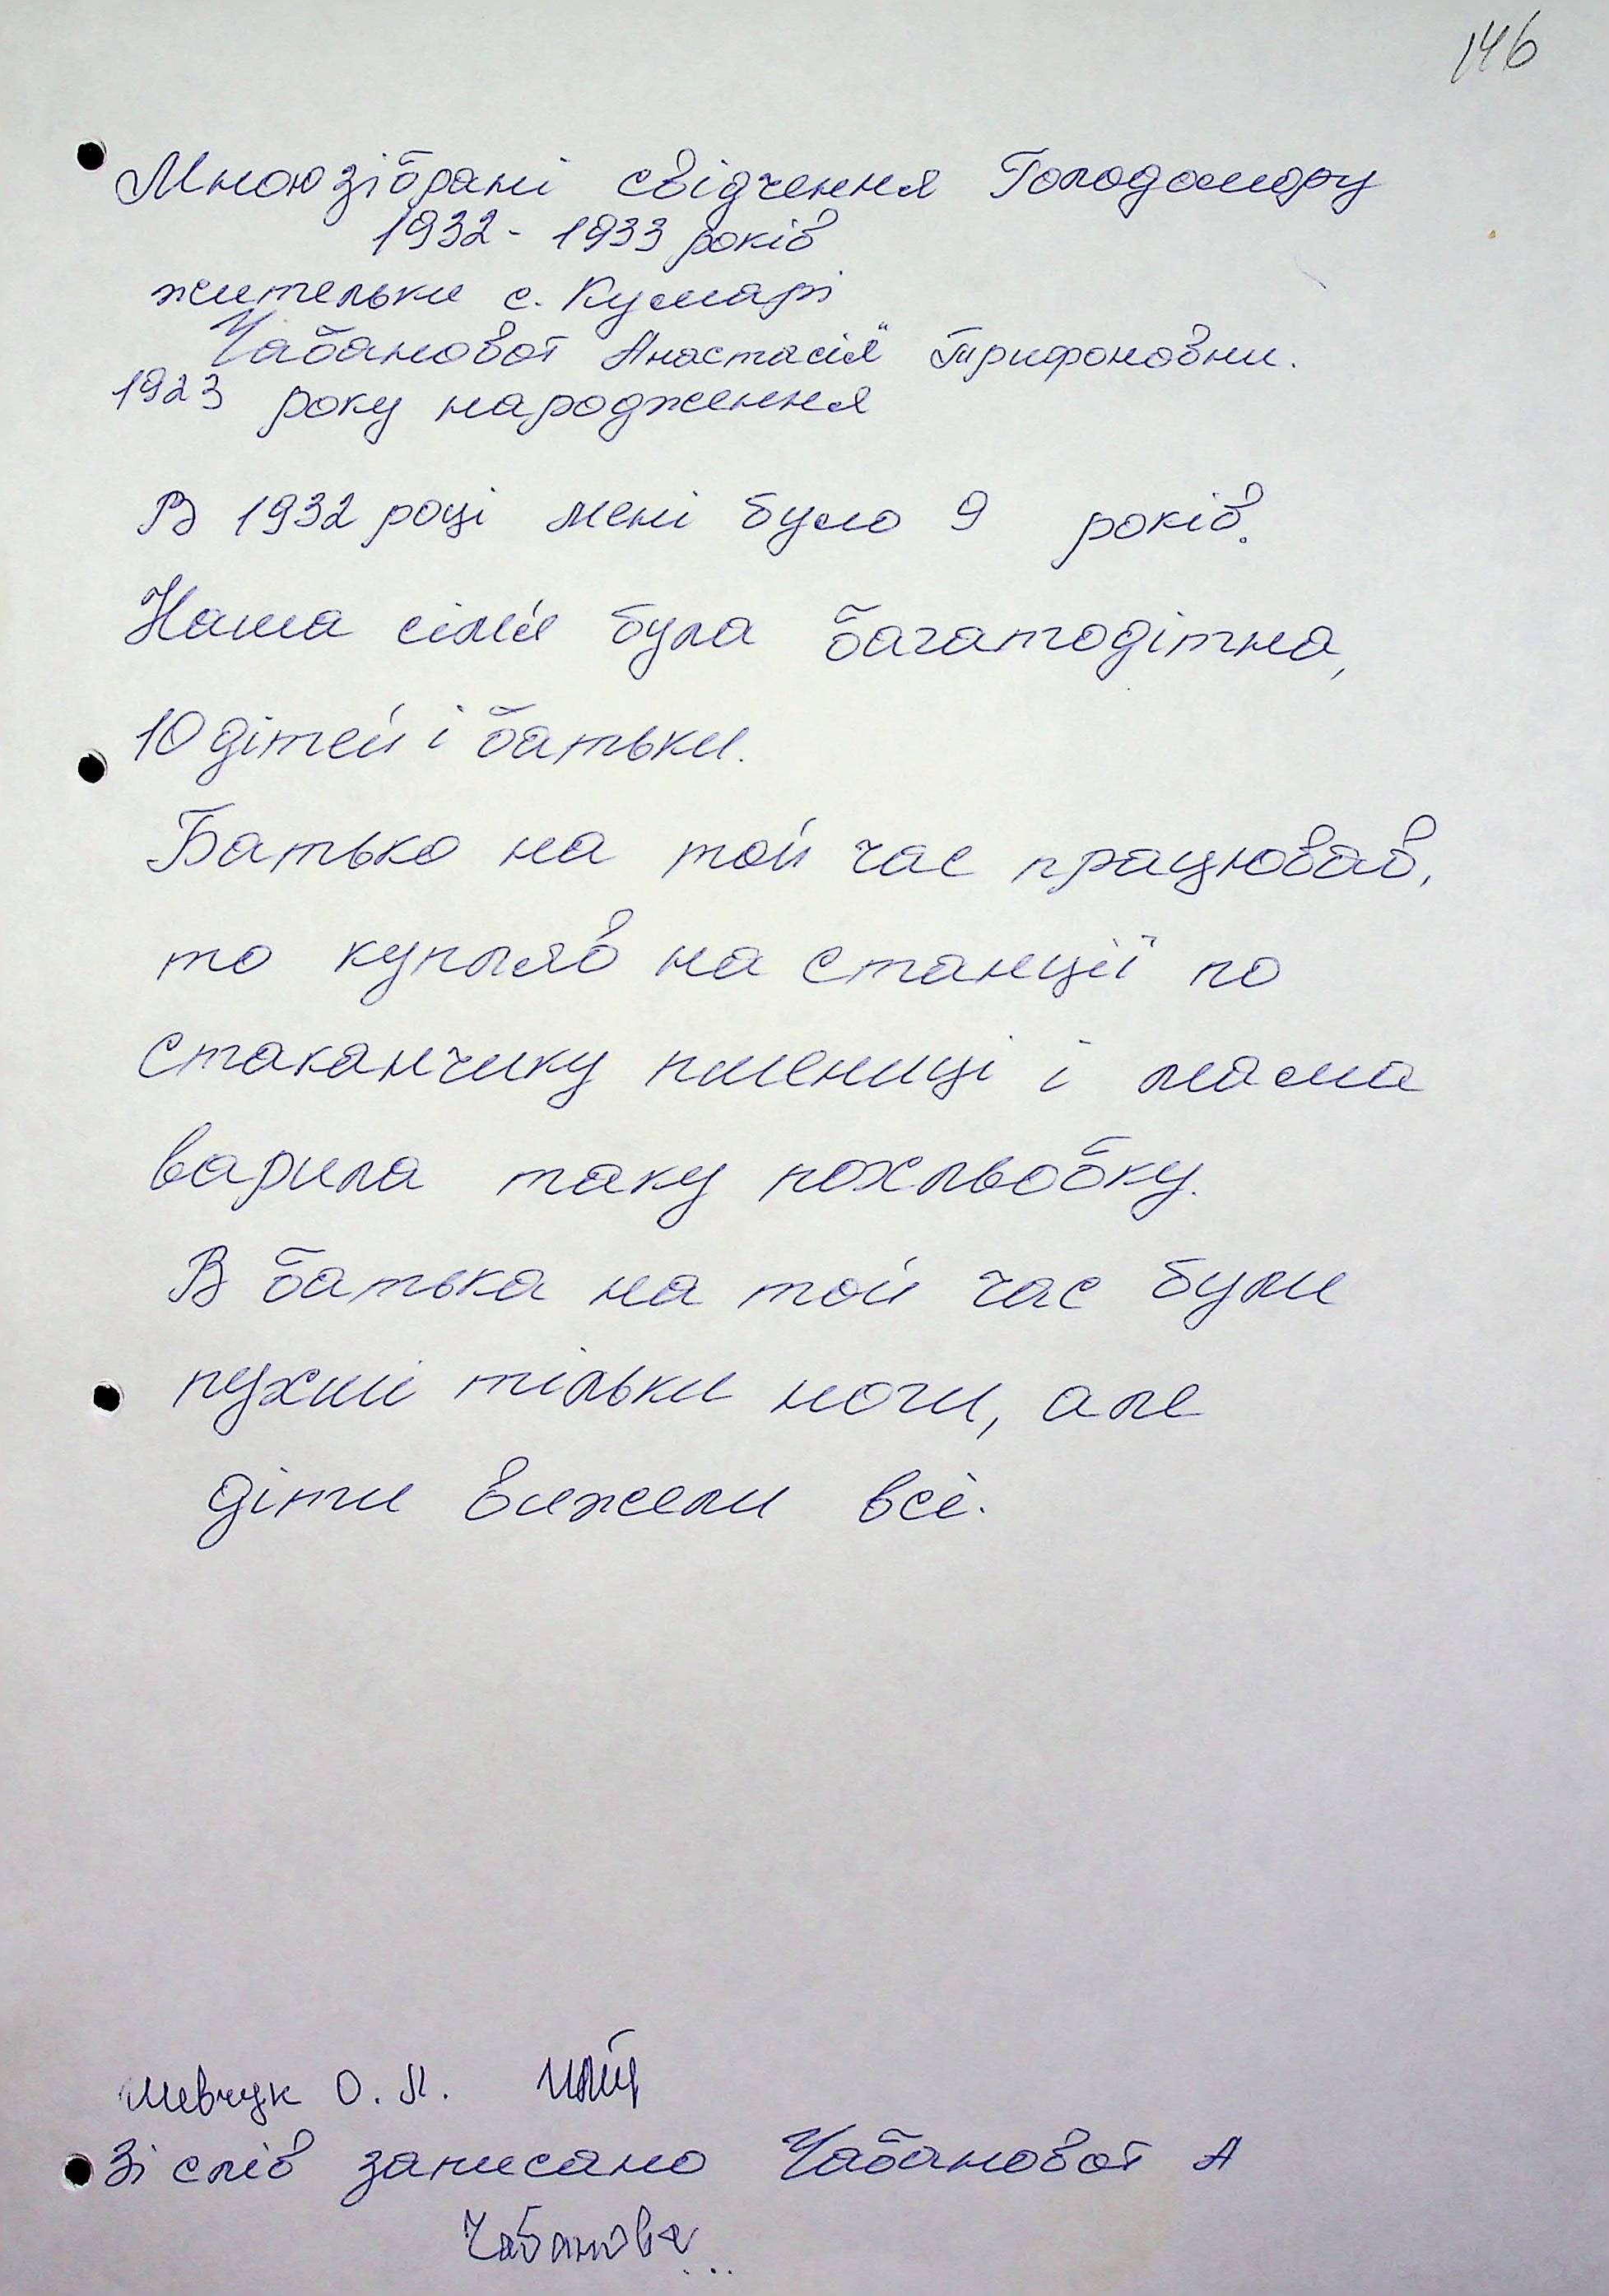 146
Мною зібрані свідчення Голодомору
1932 - 1933 років
жительки с. Кумарі
Чабанової Анастасії Трифоновни.
1923 року народження
В 1932 році мені було 9 років.
Наша сім'я була багатодітна,
10 дітей і батьки.
Батько на той час працював,
то купляв на станції по
стаканчику пшениці і мама
варила таку похльобку.
В батька на той час були
пухлі тільки ноги, але
діти вижели всі.
Шевчук О. Л.
Зі слів записано Чабанової А
Чабанова